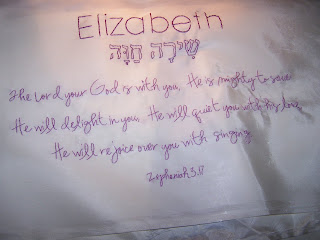 Elizabeth
שִׁירָה חַנָּה
The Lord your God is with you, He is mighty to save
He will delight in you, He will quiet you with his love
He will rejoice over you with singing.
Zephaniah 3:17